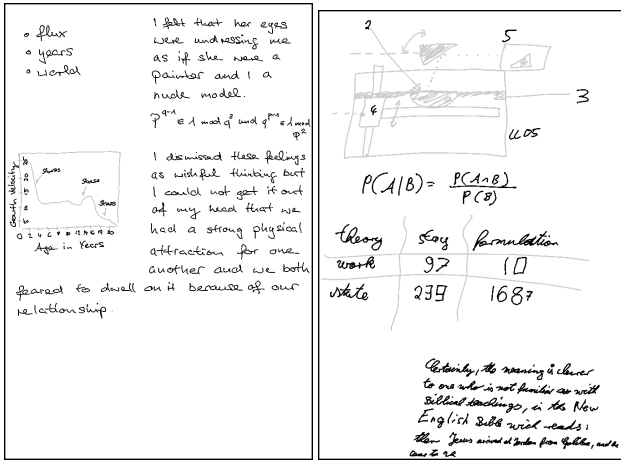 • flux
• years
• world
I felt that her eyes
were undressing me
as if she were a
painter and I a
nude model.
p^{q-1} ≡ 1 mod q² und q^{p-1} ≡ 1 mod p²
Growth Velocity
Age in Years
I dismissed these feelings
as wishful thinking but
I could not get it out
of my head that we
had a strong physical
attraction for one
another and we both
feared to dwell on it because of our
relationship.
2
5
3
4
U05
P(A|B) = P(A∩B) / P(B)
theory stay formulation
work 97 10
state 239 1687
Certainly, the meaning is clearer
to one who is not familiar with
Biblical teachings, in the New
English Bible wich reads:
then Jesus arrived at Jordan from Galilee, and he
came to